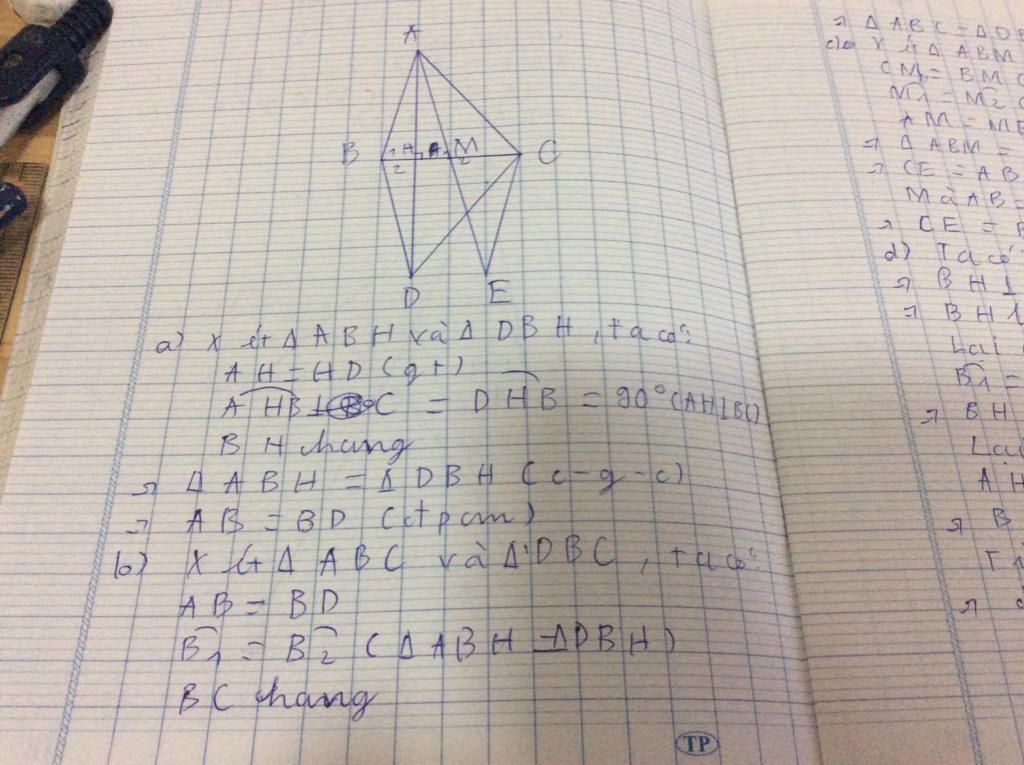 A
B 1 H 1 M C
2 2
D E
a) Xét Δ ABH và Δ DBH, ta có:
AH = HD (gt)
AHB = DHB = 90° (AH⊥BC)
BH chung
=> Δ ABH = Δ DBH (c-g-c)
=> AB = BD (đtpcm)
b) Xét Δ ABC và Δ DBC, ta có:
AB = BD
B1 = B2 (Δ ABH = Δ DBH)
BC chung
TP
=> Δ ABC = Δ DB
c) Xét Δ ABM
CM = BM
M1 = M2
AM = ME
=> Δ ABM =
=> CE = AB
Mà AB =
=> CE =
d) Ta có
=> BH ⊥
=> BH
Lại
B1 =
=> BH
Lại
AH
=> B